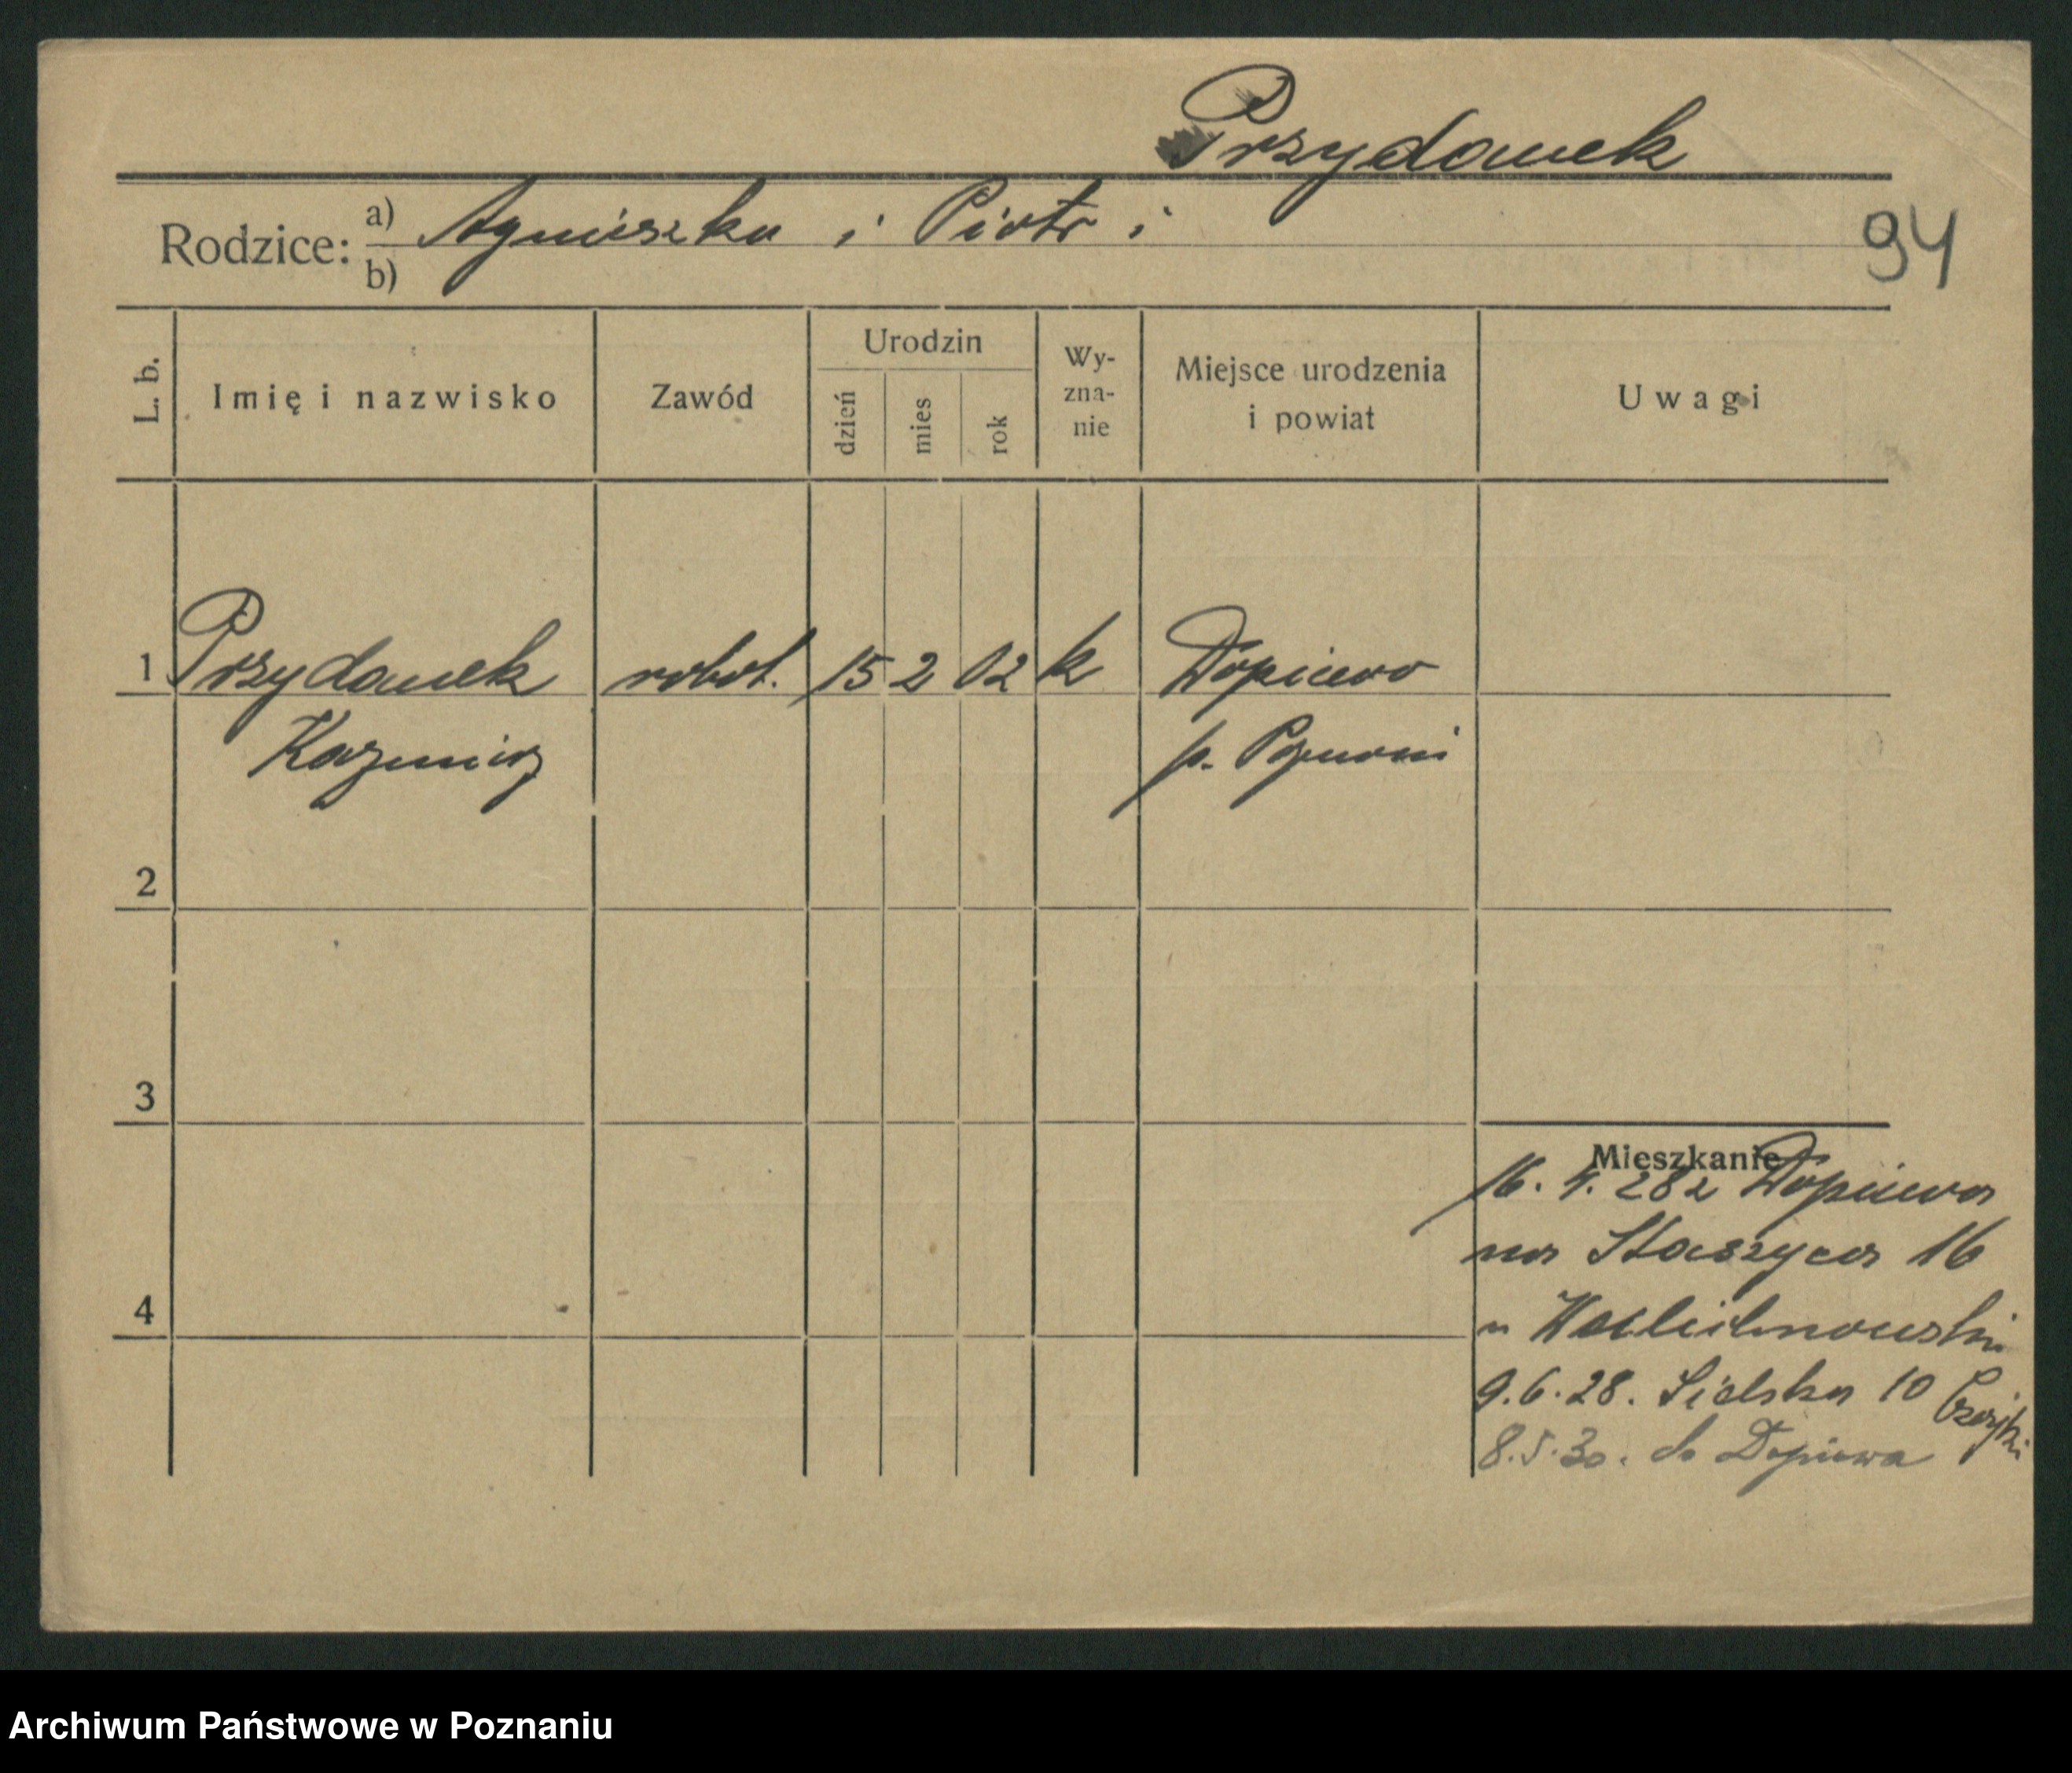 Przydanek
Rodzice: a) Agnieszka i Piotr i
b)
94
L. b. Imię i nazwisko Zawód Urodzin dzień mies rok Wy-zna-nie Miejsce urodzenia i powiat Uwagi
1 Przydanek robot. 15 2 02 k Dopiewo
Kazimierz p. Poznań
2
3
Mieszkanie
16. 4. 28 z Dopiewa
na Staszyca 16
4
9.6.28. Sielska 10
8.5.30. do Dopiewa
Archiwum Państwowe w Poznaniu